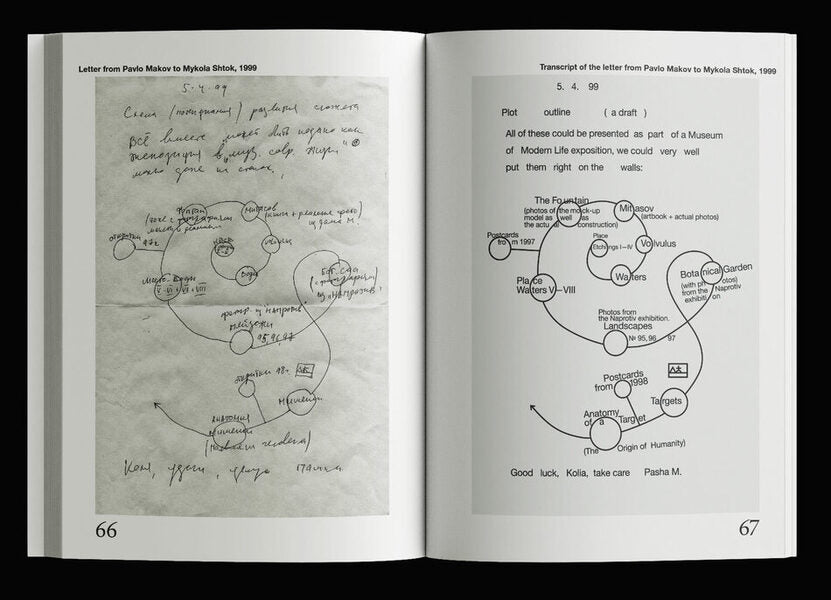 Letter from Pavlo Makov to Mykola Shtok, 1999
5-4-99
Схема развития сюжета
Всё вместе может быть подано как
экспозиция в „муз. совр. жизни"
можно даже на стенах,
Фонтан
Митасов
открытки
97г.
место
Вода
Бот. сад
95, 96, 97
открытки 98г.
Мишени
Анатомия
Мишени
Коля, удачи,
66
Transcript of the letter from Pavlo Makov to Mykola Shtok, 1999
5. 4. 99
Plot outline ( a draft )
All of these could be presented as part of a Museum
of Modern Life exposition, we could very well
put them right on the walls:
The Fountain
(photos of the mock-up
model as well as
the actual construction)
Mitasov
(artbook + actual photos)
Postcards
from 1997
Place
Etchings I—IV
Volvulus
Walters
Place
Walters V—VIII
Botanical Garden
(with photos)
from the Naprotiv
exhibition
Photos from
the Naprotiv exhibition.
Landscapes
№ 95, 96 97
Postcards
from 1998
Targets
Anatomy
of a Target
(The Origin of Humanity)
Good luck, Kolia, take care Pasha M.
67